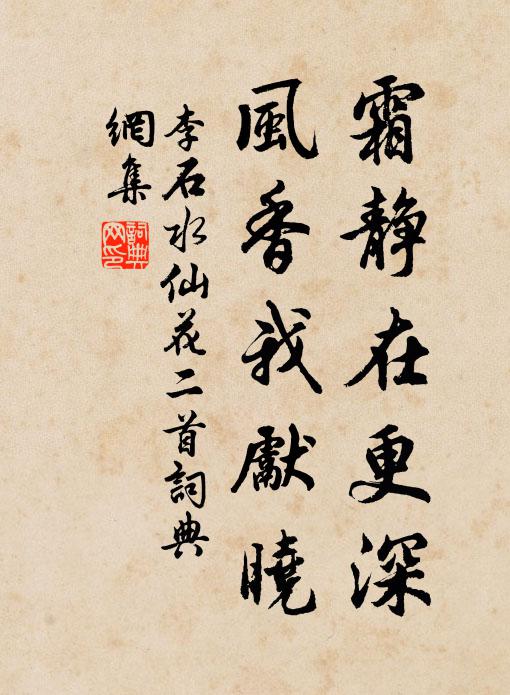 霜靜在更深
風香我獻曉
李石水仙花二首詞典
網集
詞典
网印